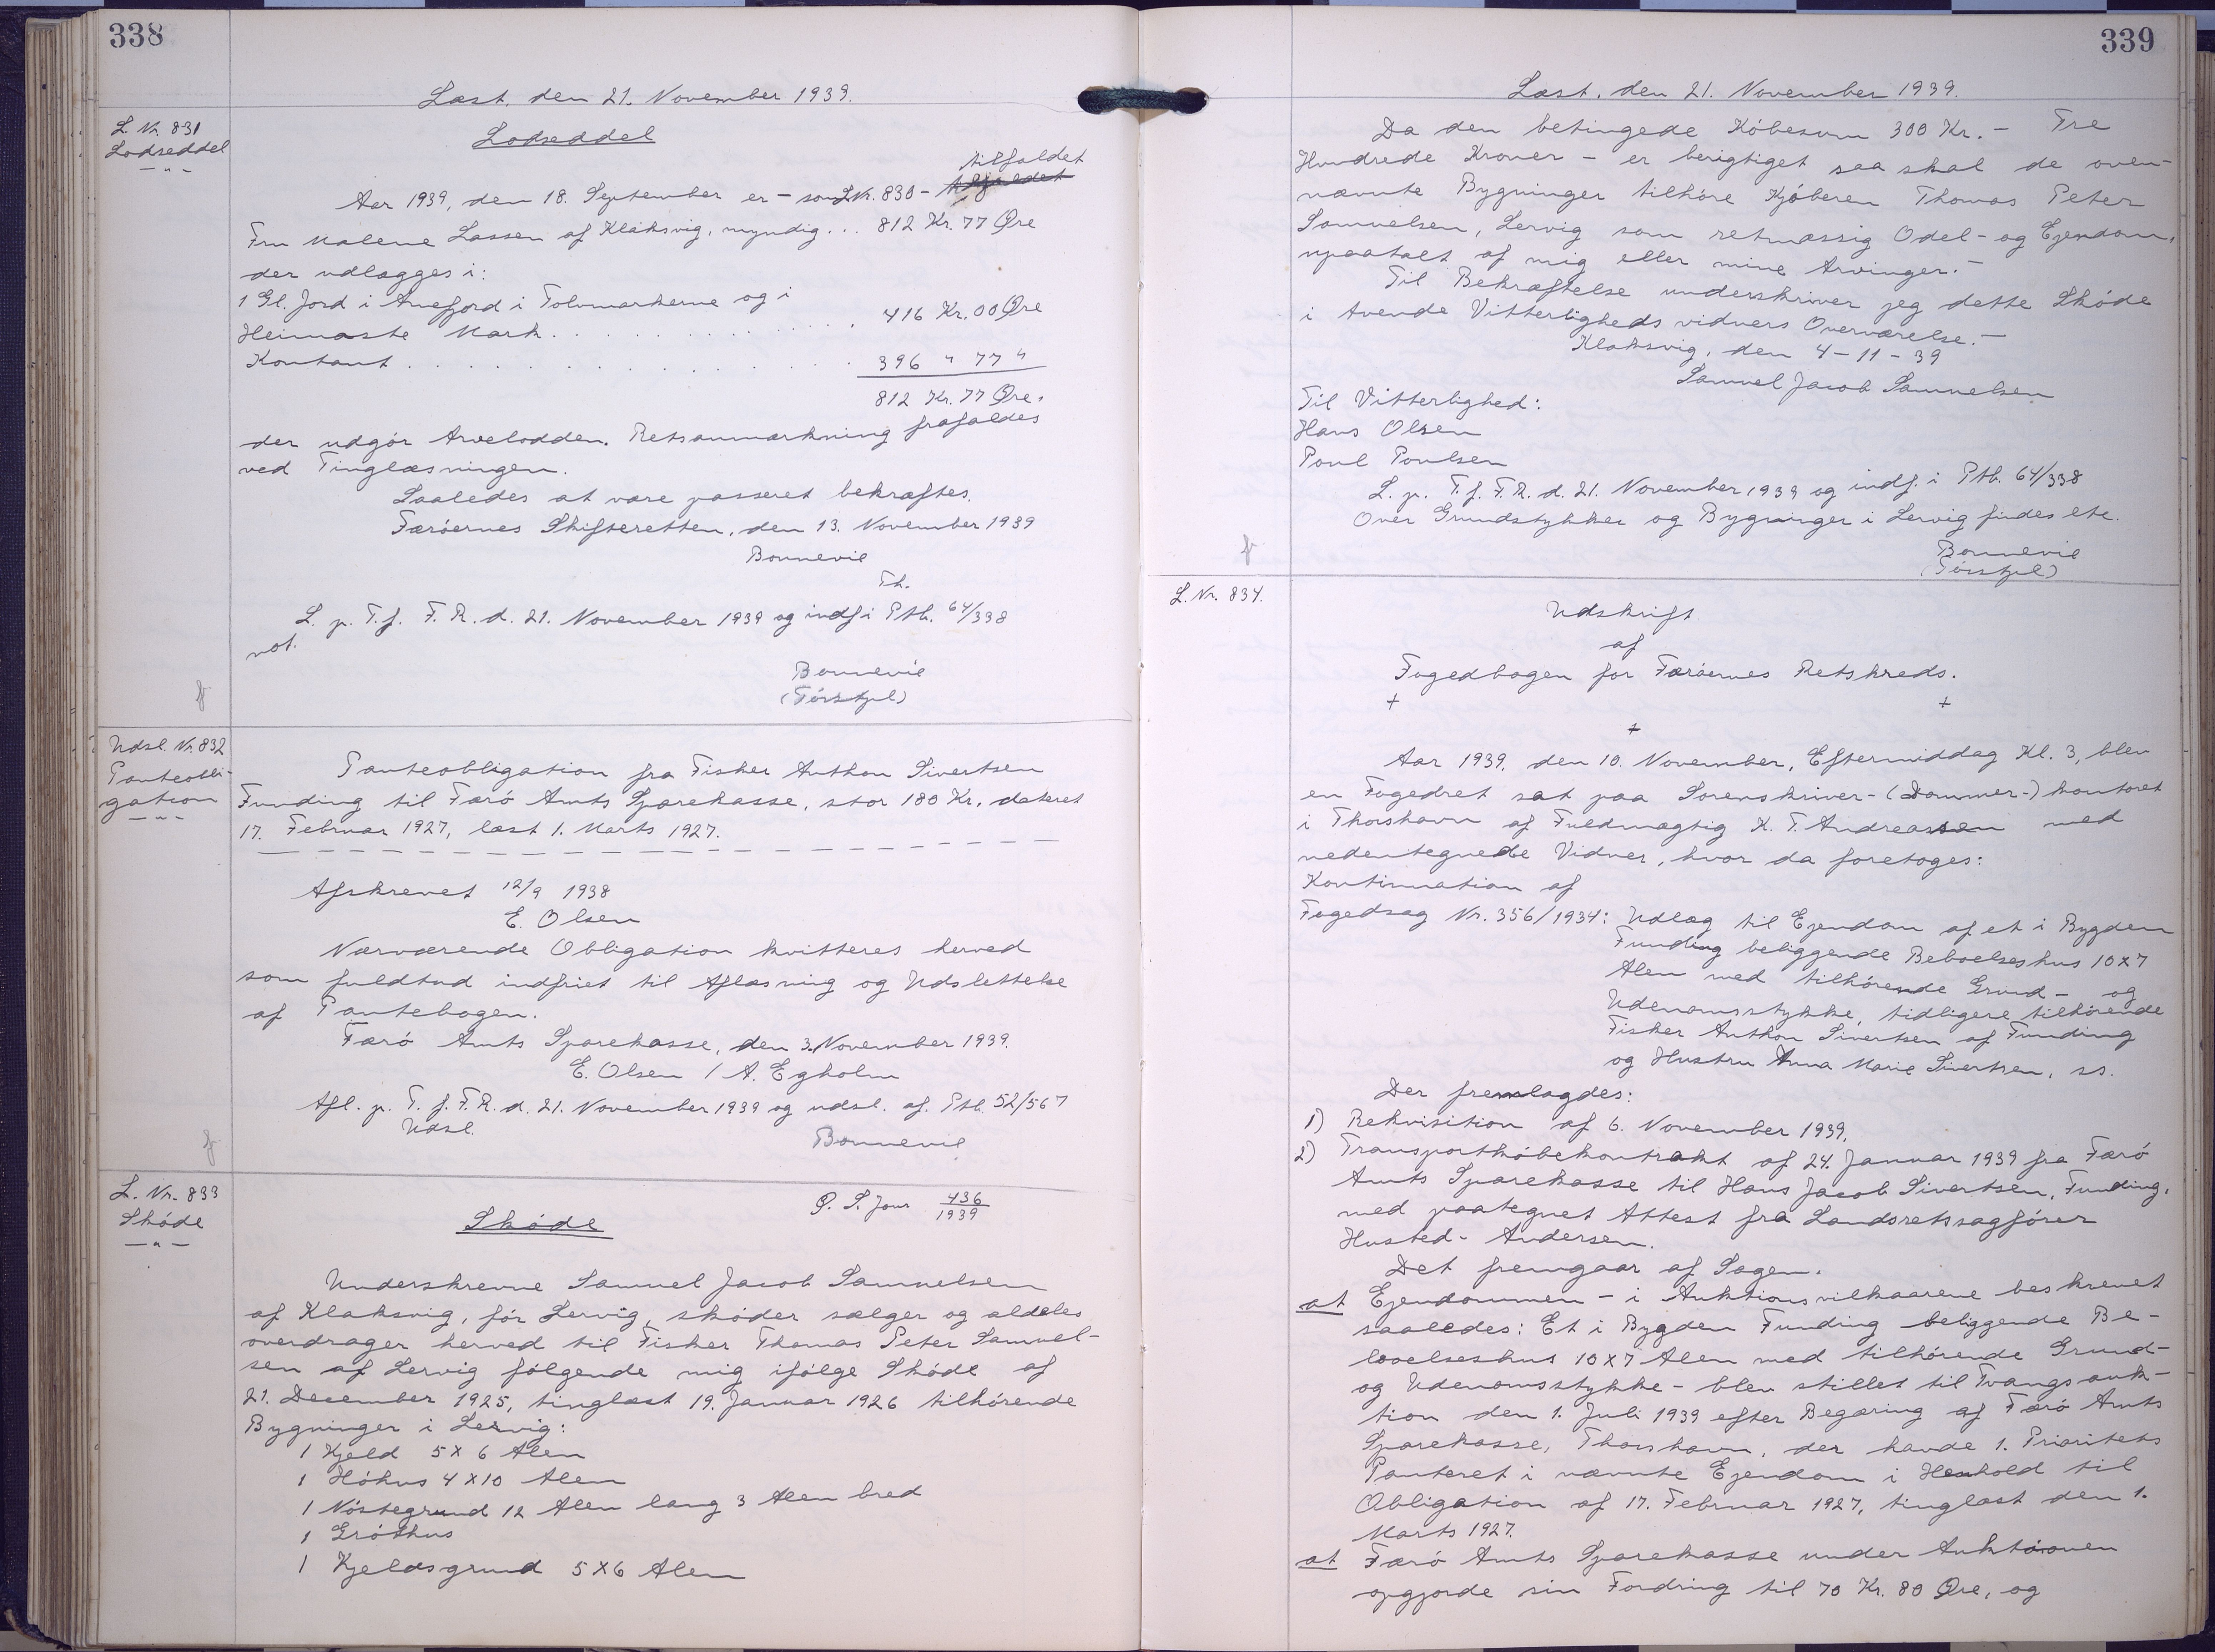 338
Læst, den 21. November 1939.
L. Nr. 831
Lodseddel
— " —
Lodseddel
tilfaldet
Aar 1939, den 18. September er - som L Nr. 830 -
Fru Malene Lassen af Klaksvig, myndig... 812 Kr. 77 Øre
der udlægges i:
1 Gl. Jord i Anefjord i Tolvmarkerne og i
Heimaste Mark . . . . . . . . . . 416 Kr. 00 Øre
Kontant . . . . . . . . . . . . . . 396 " 77 "
812 Kr. 77 Øre,
der udgór Arvelodden. Retsanmærkning frafaldes
ved Tinglæsningen.
Saaledes at være passeret bekræftes.
Færóernes Skifteretten, den 13. November 1939
Bonnevie
Th.
L. p. T. f. F. R. d. 21. November 1939 og indf i Ptb. 64/338
not.
Bonnevie
(Tórstjel)
f
Udsl. Nr. 832
Panteobli-
gation
— " —
Panteobligation fra Fisker Anthon Sivertsen
Funding til Færó Amts Sparekasse, stor 180 Kr. dateret
17. Februar 1927, læst 1. Marts 1927.
Afskrevet 12/9 1938
E. Olsen
Nærværende Obligation kvitteres herved
som fuldtud indfriet til Aflæsning og Udslettelse
af Pantebogen.
Færó Amts Sparekasse, den 3. November 1939.
E. Olsen / A. Egholm
Afl. p. T. f. F. R. d. 21. November 1939 og udsl. af. Ptb. 52/567
Udsl.
Bonnevie
f
L. Nr. 833
Skóde
— " —
Skóde
P. S. Jour 436/1939
Underskrevne Samuel Jacob Samuelsen
af Klaksvig, fór Lervig, skóder sælger og aldeles
overdrager herved til Fisker Thomas Peter Samuel-
sen af Lervig fólgende mig ifólge Skóde af
21. December 1925, tinglæst 19. Januar 1926 tilhórende
Bygninger i Lervig:
1 Kjeld 5 x 6 Alen
1 Hóhus 4 x 10 Alen
1 Nóstegrund 12 Alen lang 3 Alen bred
1 Gróthus
1 Kjeldsgrund 5 x 6 Alen
339
Læst, den 21. November 1939.
Da den betingede Kóbesum 300 Kr. - Tre
Hundrede Kroner - er berigtiget saa skal de oven-
nævnte Bygninger tilhóre Kjóberen Thomas Peter
Samuelsen, Lervig som retmæssig Odel- og Ejendom,
upaatalt af mig eller mine Arvinger. -
Til Bekræftelse underskriver jeg dette Skóde
i tvende Vitterligheds vidners Overværelse. -
Klaksvig, den 4 - 11 - 39
Samuel Jacob Samuelsen
Til Vitterlighed:
Hans Olsen
Poul Poulsen
L. p. T. f. F. R. d. 21. November 1939 og indf. i Ptb. 64/338
Over Grundstykker og Bygninger i Lervig findes etc.
Bonnevie
(Tórstjel)
f
L. Nr. 834.
Udskrift
af
Fogedbogen for Færóernes Retskreds.
+ +
+
Aar 1939, den 10. November, Eftermiddag Kl. 3, blev
en Fogedret sat paa Sorenskriver- (Dommer-) kontoret
i Thorshavn af Fuldmægtig K. T. Andreassen med
nedentegnede Vidner, hvor da foretoges:
Kontinuation af
Fogedsag Nr. 356/1934: Udlæg til Ejendom af et i Bygden
Funding beliggende Beboelseshus 10 x 7
Alen med tilhórende Grund- og
Udenomsstykke, tidligere tilhórende
Fisker Anthon Sivertsen af Funding
og Hustru Anna Marie Sivertsen, ss.
Der fremlagdes:
1) Rekvisition af 6. November 1939.
2) Transportkóbekontrakt af 24. Januar 1939 fra Færó
Amts Sparekasse til Hans Jacob Sivertsen, Funding,
med paategnet Attest fra Landsretssagfórer
Husted-Andersen.
Det fremgaar af Sagen.
at Ejendommen - i Auktionsvilkaarene beskrevet
saaledes: Et i Bygden Funding beliggende Be-
boelseshus 10 x 7 Alen med tilhórende Grund-
og Udenomsstykke - blev stillet til Tvangsauk-
tion den 1. Juli 1939 efter Begæring af Færó Amts
Sparekasse, Thorshavn, der havde 1. Prioritets
Panteret i nævnte Ejendom i Henhold til
Obligation af 17. Februar 1927, tinglæst den 1.
Marts 1927.
at Færó Amts Sparekasse under Auktionen
opgjorde sin Fordring til 70 Kr. 80 Øre, og